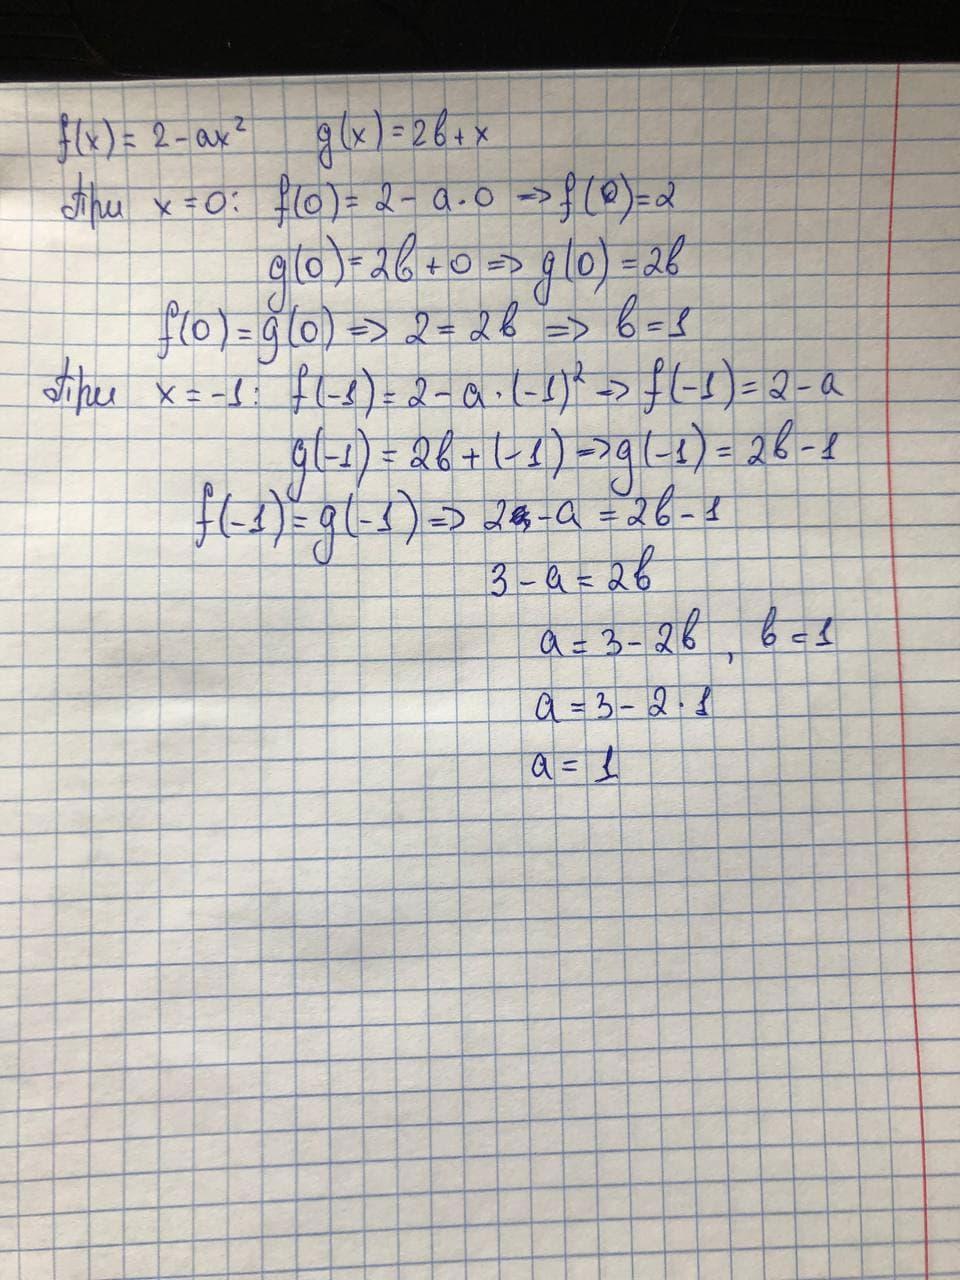 f(x) = 2 - ax² g(x) = 2в + x
При x = 0: f(0) = 2 - a · 0 => f(0) = 2
g(0) = 2в + 0 => g(0) = 2в
f(0) = g(0) => 2 = 2в => в = 1
При x = -1: f(-1) = 2 - a · (-1)² => f(-1) = 2 - a
g(-1) = 2в + (-1) => g(-1) = 2в - 1
f(-1) = g(-1) => 2 - a = 2в - 1
3 - a = 2в
a = 3 - 2в , в = 1
a = 3 - 2 · 1
a = 1